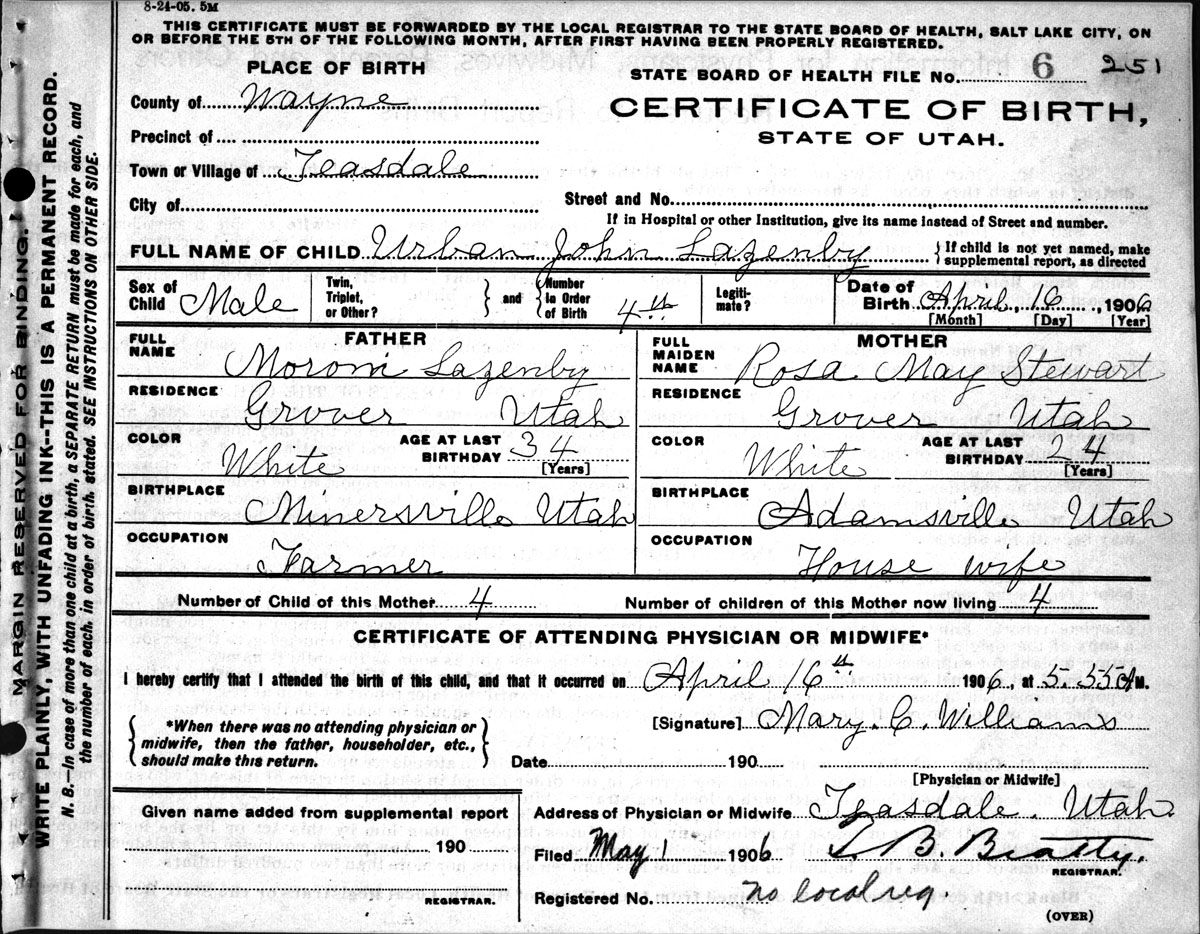 8-24-05. 5M
THIS CERTIFICATE MUST BE FORWARDED BY THE LOCAL REGISTRAR TO THE STATE BOARD OF HEALTH, SALT LAKE CITY, ON
OR BEFORE THE 5TH OF THE FOLLOWING MONTH, AFTER FIRST HAVING BEEN PROPERLY REGISTERED.
PLACE OF BIRTH
STATE BOARD OF HEALTH FILE No. 6 251
County of Wayne
CERTIFICATE OF BIRTH,
STATE OF UTAH.
Precinct of
Town or Village of Teasdale
City of
Street and No.
If in Hospital or other Institution, give its name instead of Street and number.
FULL NAME OF CHILD Urban John Lazenby { If child is not yet named, make
supplemental report, as directed
Sex of Child Male
Twin, Triplet, or Other? } and { Number in Order of Birth 4th
Legiti- mate?
Date of Birth April, 16, 1906
[Month] [Day] [Year]
FATHER
FULL NAME Moroni Lazenby
RESIDENCE Grover Utah
COLOR White AGE AT LAST BIRTHDAY 34 [Years]
BIRTHPLACE Minersville Utah
OCCUPATION Farmer
MOTHER
FULL MAIDEN NAME Rosa May Stewart
RESIDENCE Grover Utah
COLOR White AGE AT LAST BIRTHDAY 24 [Years]
BIRTHPLACE Adamsville Utah
OCCUPATION House wife
Number of Child of this Mother 4 Number of children of this Mother now living 4
CERTIFICATE OF ATTENDING PHYSICIAN OR MIDWIFE*
I hereby certify that I attended the birth of this child, and that it occurred on April 16th 1906, at 5.55 A M.
{ *When there was no attending physician or
midwife, then the father, householder, etc.,
should make this return. }
[Signature] Mary. C. Williams
Date 190
[Physician or Midwife]
Given name added from supplemental report
190
REGISTRAR.
Address of Physician or Midwife Teasdale. Utah
Filed May 1 1906 B. Beatty.
REGISTRAR.
Registered No. no local reg.
(OVER)
MARGIN RESERVED FOR BINDING.
WRITE PLAINLY, WITH UNFADING INK--THIS IS A PERMANENT RECORD.
N. B.--In case of more than one child at a birth, a SEPARATE RETURN must be made for each, and
the number of each, in order of birth, stated. SEE INSTRUCTIONS ON OTHER SIDE.